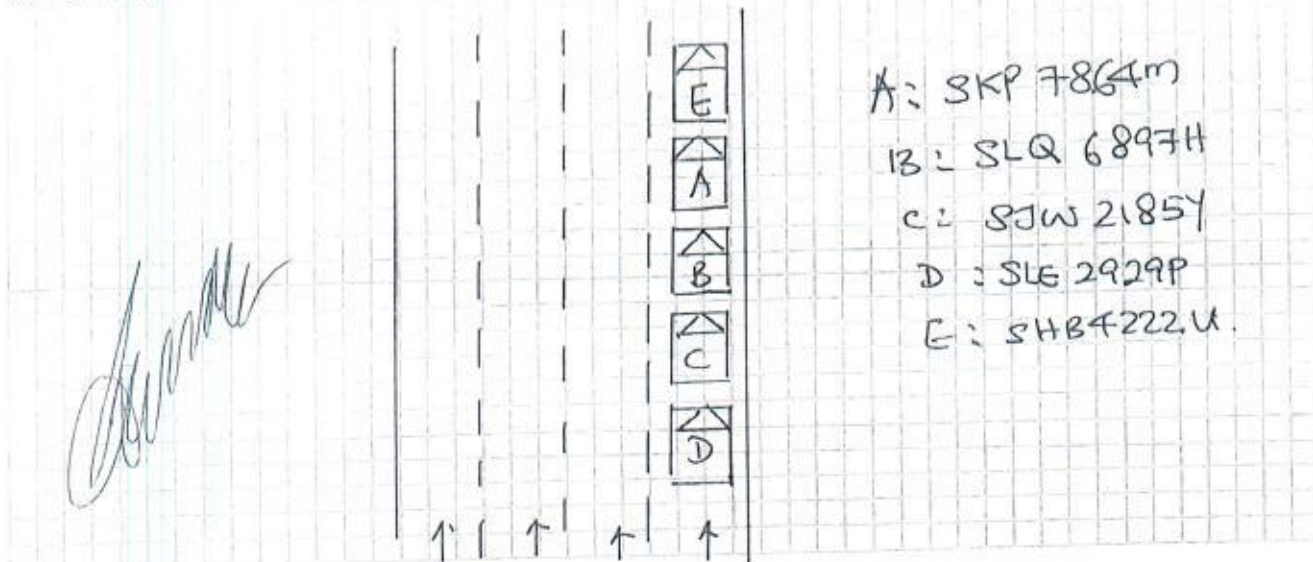 E
A
B
C
D
A: SKP 7864M
B: SLQ 6897H
C: SJW 2185Y
D: SLE 2929P
E: SHB4222U.